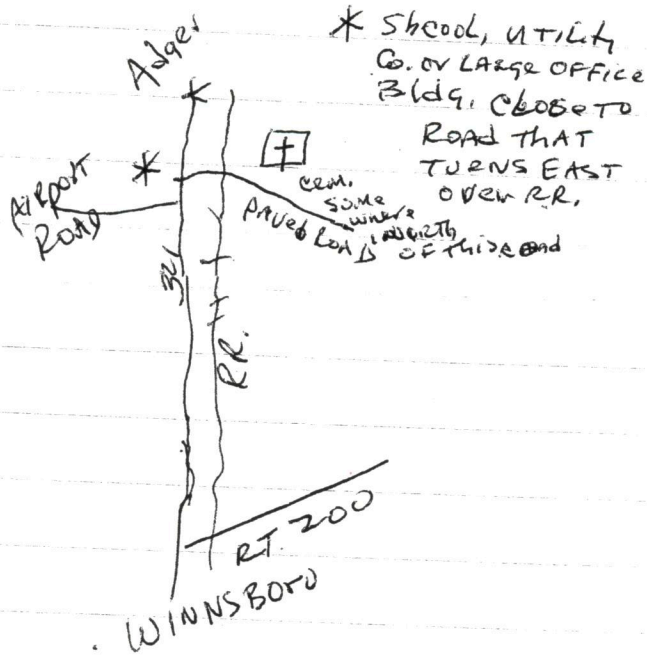 Adger
* Shcool, UTILITY
Co. or LARGE OFFICE
Bldg. CLOSE TO
ROAD THAT
TURNS EAST
OVER R.R.
*
AIRPORT
ROAD
cem.
some
where
north
OF this road
PAVED ROAD
321
R.R.
RT. 200
WINNSBORO